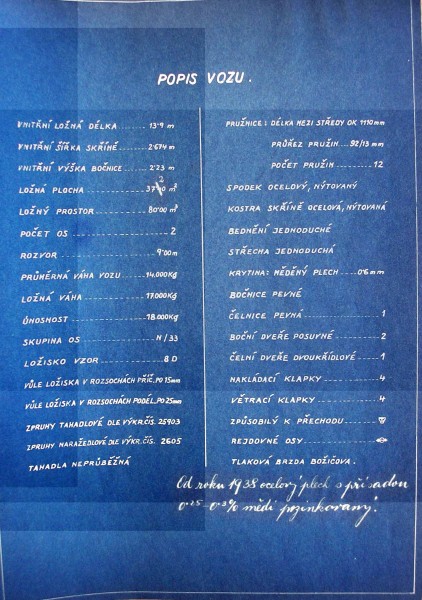 POPIS VOZU.
VNITŘNÍ LOŽNÁ DÉLKA 13·9 m
VNITŘNÍ ŠÍŘKA SKŘÍNĚ 2·674 m
VNITŘNÍ VÝŠKA BOČNICE 2·23 m
LOŽNÁ PLOCHA m²
LOŽNÝ PROSTOR 80·00 m³
POČET OS 2
ROZVOR 9·00 m
PRŮMĚRNÁ VÁHA VOZU 14.000 Kg
LOŽNÁ VÁHA 17.000 Kg
ÚNOSNOST 18.000 Kg
SKUPINA OS N/33
LOŽISKO VZOR 8 D
VŮLE LOŽISKA V ROZSOCHÁCH PŘÍČ. PO 15 mm
VŮLE LOŽISKA V ROZSOCHÁCH PODÉL. PO 25 mm
ZPRUHY TAHADLOVÉ DLE VÝKR. ČÍS. 25903
ZPRUHY NARAŽEDLOVÉ DLE VÝKR. ČÍS. 2605
TAHADLA NEPRŮBĚŽNÁ
PRUŽNICE: DÉLKA MEZI STŘEDY OK 1110 mm
PRŮŘEZ PRUŽIN 92/13 mm
POČET PRUŽIN 12
SPODEK OCELOVÝ, NÝTOVANÝ
KOSTRA SKŘÍNĚ OCELOVÁ, NÝTOVANÁ
BEDNĚNÍ JEDNODUCHÉ
STŘECHA JEDNODUCHÁ
KRYTINA: MĚDĚNÝ PLECH 0·6 mm
BOČNICE PEVNÉ
ČELNICE PEVNÁ 1
BOČNÍ DVEŘE POSUVNÉ 2
ČELNÍ DVEŘE DVOUKŘÍDLOVÉ 1
NAKLÁDACÍ KLAPKY 4
VĚTRACÍ KLAPKY 4
ZPŮSOBILÝ K PŘECHODU
REJDOVNÉ OSY
TLAKOVÁ BRZDA BOŽIČOVA.
Od roku 1938 ocelový plech s přísadou
0·25 - 0·3% mědi pozinkovaný.